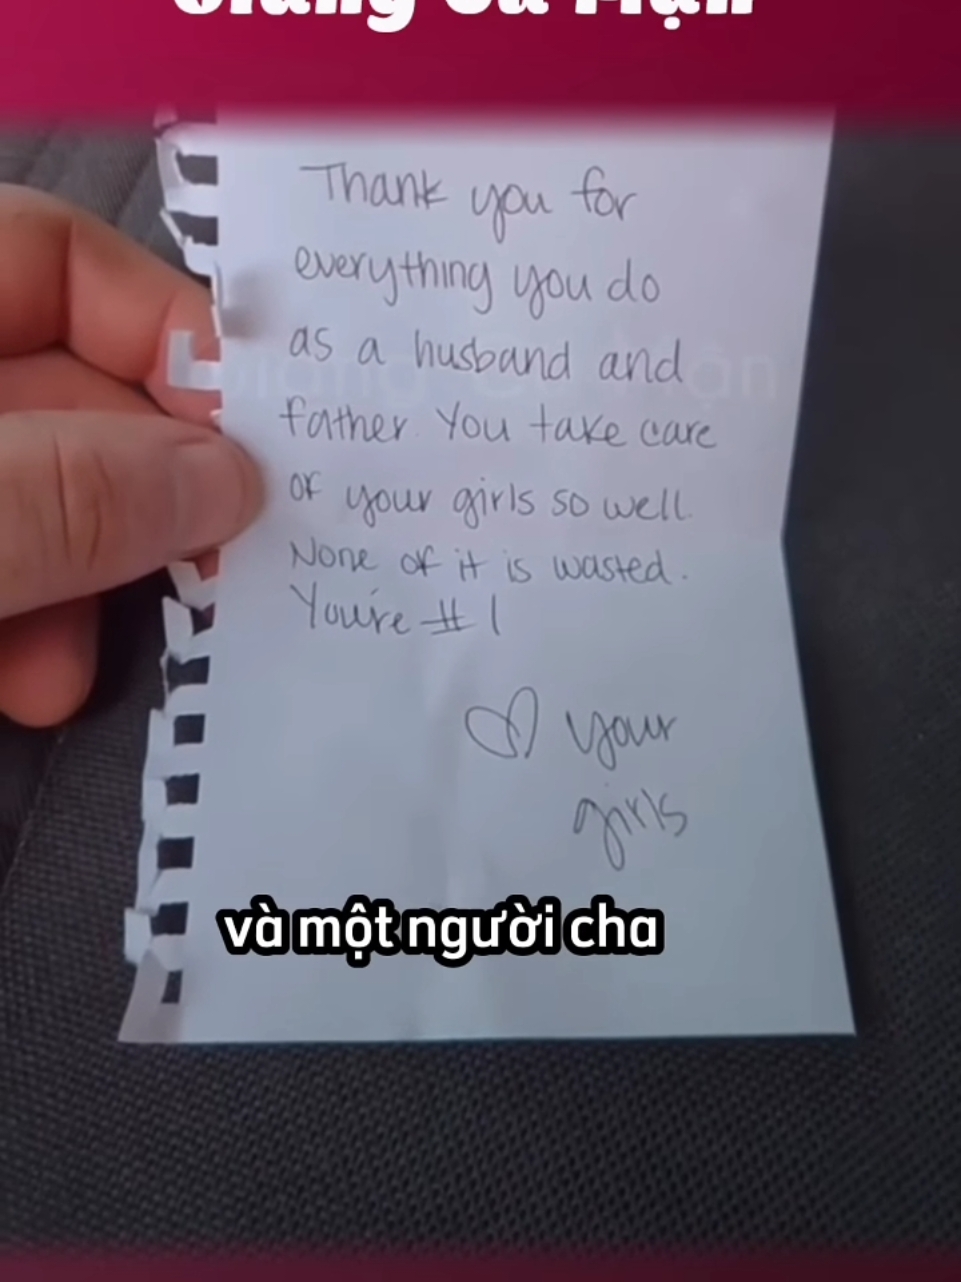 Thank you for
everything you do
as a husband and
father. You take care
of your girls so well.
None of it is wasted.
You're #1
♡ your
girls
và một người cha